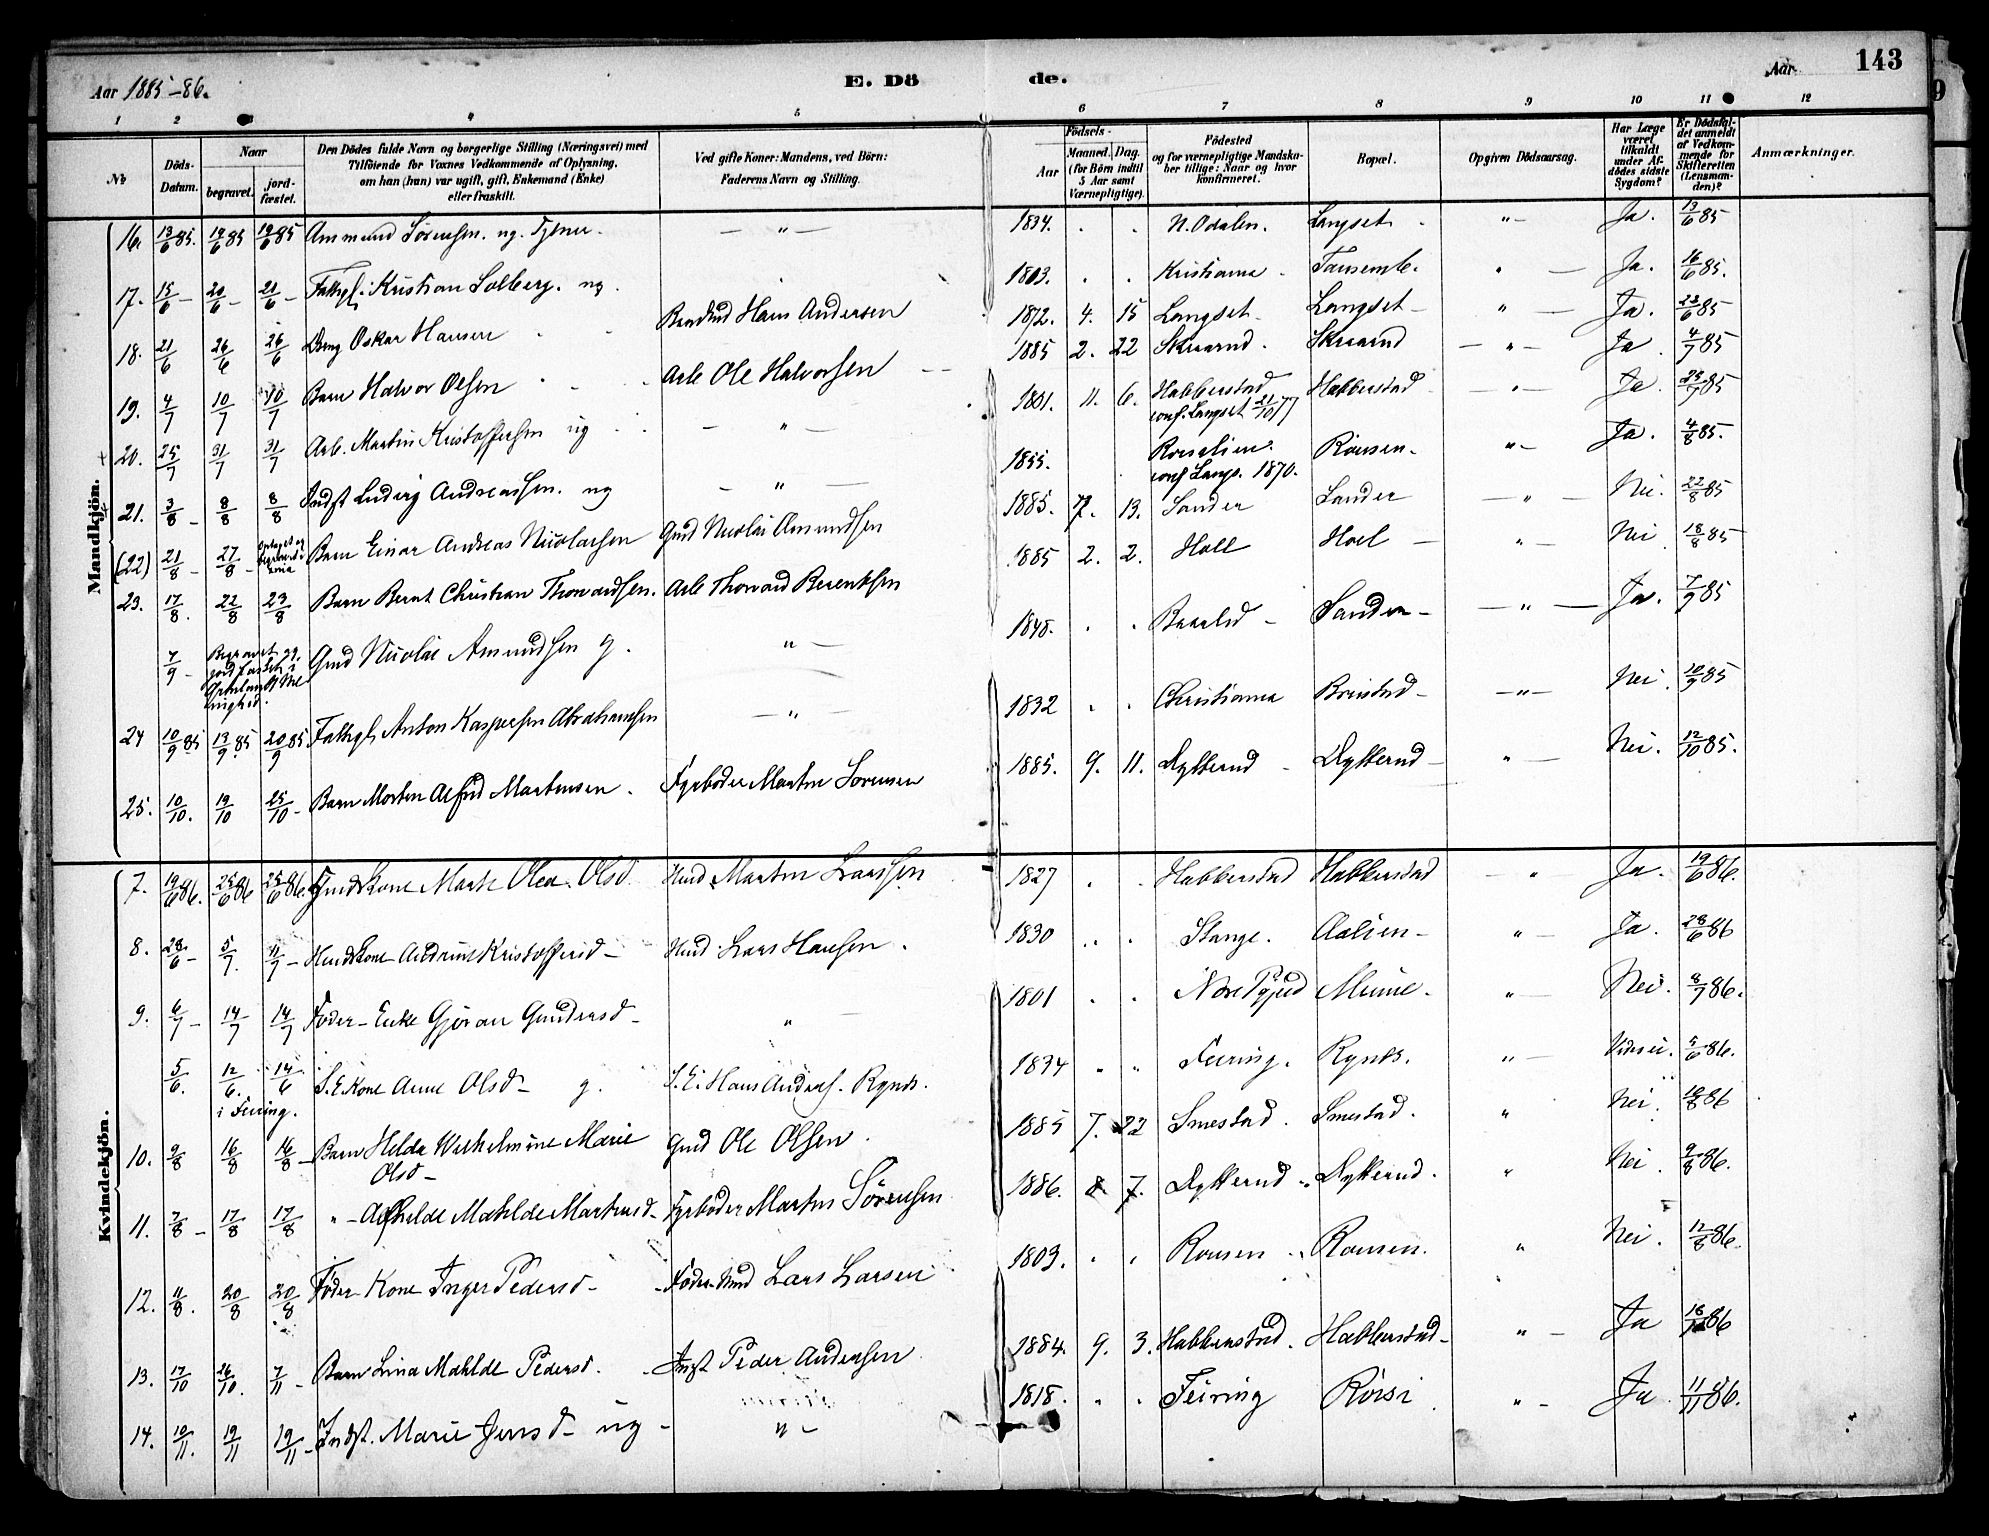 143
Aar 1885-86.
E. Döde.
Aar
1 2 3 4 5 6 7 8 9 10 11 12
No
Döds-Datum.
Naar
begravet.
jord-fæstet.
Den Dödes fulde Navn og borgerlige Stilling (Næringsvei) med
Tilföiende for Voxnes Vedkommende af Oplysning,
om han (hun) var ugift, gift, Enkemand (Enke)
eller fraskilt.
Ved gifte Koner: Mandens, ved Börn:
Faderens Navn og Stilling.
Födsels-
Aar
Maaned. Dag.
(for Börn indtil
5 Aar samt
Værnepligtige).
Födested
og for værnepligtige Mandska-
ber tillige: Naar og hvor
konfirmeret.
Bopæl.
Opgiven Dödsaarsag.
Har Læge
været
tilkaldt
under Af-
dödes sidste
Sygdom?
Er Dödsfal-
det anmeldt
af Vedkom-
mende for
Skifteretten
(Lensman-
den)?
Anmærkninger.
Mandkjön.
16. 13/6 85. 19/6 85 19/6 85 Ammund Sörensen. ug. Tjener. — " — 1834. N. Odalen. Langset " - Ja. 13/6 85
17. 15/6 - 20/6 - 21/6 - Fattigl. Kristian Solberg. ug. 1803. Kristiania Tousemb. Ja. 16/6 85.
18. 21/6 26/6 26/6 Dreng Oskar Hansen Hans Andersen 1872. 4. 15 Langset Langset " Ja. 23/6 85
19. 4/7 10/7 10/7 Barn Halvor Olsen Arb. Ole Halvorsen 1885 2. 22 Skraarud. Skraarud " Ja 4/7 85
20. 25/7 31/7 31/7 Arb. Martin Kristoffersen ug — " — 11. 6. Habberstad conf. Langset 21/10 77 Habberstad Ja. 25/7 85
21. 3/8 - 8/8 8/8 Indst Ludvig Andreassen. ug — " — 1855. conf. Langs. 1870. Rousen. " Ja. 4/8 85.
(22) 21/8 - 27/8 - Barn Einar Andreas Nicolaisen Gmd Nicolai Amundsen 1885. 7. 13. Sander Sander " Nei. 22/8 85
23. 17/8. 22/8 23/8 Barn Bernt Christian Thorvardsen. Arb Thorvard Berentsen 1885 2. 2. Holl Hoel " Nei 18/8 85
7/9 - Begravet og jordfæstet i Gmd Nicolai Amundsen g. " 1848. Sander - — " — Ja. 7/9 85
24 10/9 85 13/9. 85 20/9 85 Fattigl. Anton Kaspersen Abrahamsen — " — 1832 Christiania — " — Nei. 10/9 85
25. 10/10. 19/10 25/10 - Barn Morten Alfred Martinsen. Fyrböder Martin Sörensen 1885. 9. 11. Dytterud Dytterud " Nei. 12/10 85.
Kvindekjön.
7. 19/6 86. 25/6 86 25/6 86. Kone Marte Olea Olsd. Hmd Martin Larssen 1827 Habberstad Habberstad " Ja. 19/6 86.
8. 28/6 - 5/7. 11/7 - Hmds Kone Andrine Kristoffersd - Hmd Lars Hansen. 1830 Stange. Aalien - " Ja. 28/6 86
9. 6/7 - 14/7 14/7 Föder - Enke Gjöran Gundersd - " 1801 Mime. " Nei. 8/7 86.
5/6. 12/6. 14/6 i Feiring. S. E. Kone Anne Olsd - g. S. E. Hans Anders. Rynds. 1834 " " Feiring. Rynds. " 5/6 86.
10. 9/8 16/8 16/8 - Barn Hilda Wilhelmine Marie Olsd - Gmd Ole Olsen. 1885 7. 22 Smestad. Smestad. " Nei. 10/8 86
11. 7/8 - 17/8 17/8 " - Alfhilde Mathilde Martinsd - Fyrböder Martin Sörensen 1886. 8 7. Dytterud Dytterud. " Nei. 9/8 86.
12. 11/8. 20/8 20/8 Föder Kone Inger Pedersd - Föder-Mnd Lars Larsen 1803. Rousen Rousen. " Nei. 12/8 86.
13. 17/10 26/10. 7/11 - Barn Lina Mathilde Pedersd. - Inst Peder Andersen 1884. 9. 3. Habberstad. Habberstad - " - Ja 86
14. 10/11. 19/11 19/11 - Indst. Marie Jensd - ug - " - 1818. Feiring Rörsi " - Ja 11/11 86.